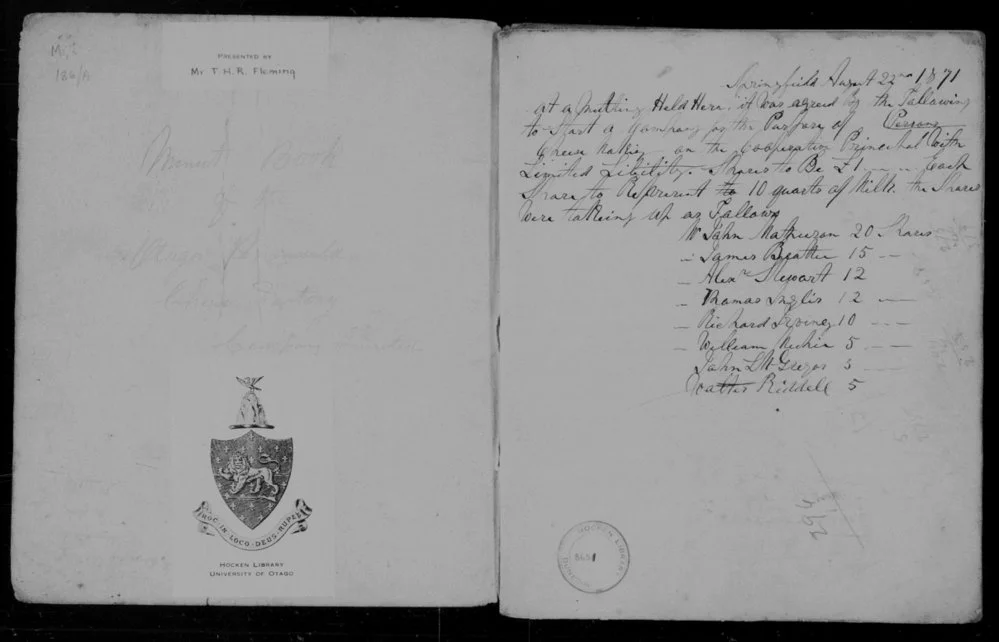 PRESENTED BY
Mr T. H. R. Fleming
186/A
Minute Book
of the
Otago Peninsula
Cheese Factory
Company Limited
HOC IN LOCO DEUS RUPES
HOCKEN LIBRARY
UNIVERSITY OF OTAGO
Springfield August 22nd 1871
At a Meetting Held Here, it was agreed by the Fallowing
to Start a Company for the Purpose of Persons
Cheese Making on the Cooperative Principal With
Limited Libility. Shares to Be £1 Each
Share to Represent to 10 quarts of Milk. the Shares
Were talking Up as Fallows
Mr John Mathieson 20 Shares
" James Beattie 15 "
" Alexr Stewart 12
" Thomas Inglis 12 "
" Richard Irving 10 "
" William 5 "
John McGregor 3
Walter Riddell 5
294
HOCKEN LIBRARY
DUNEDIN